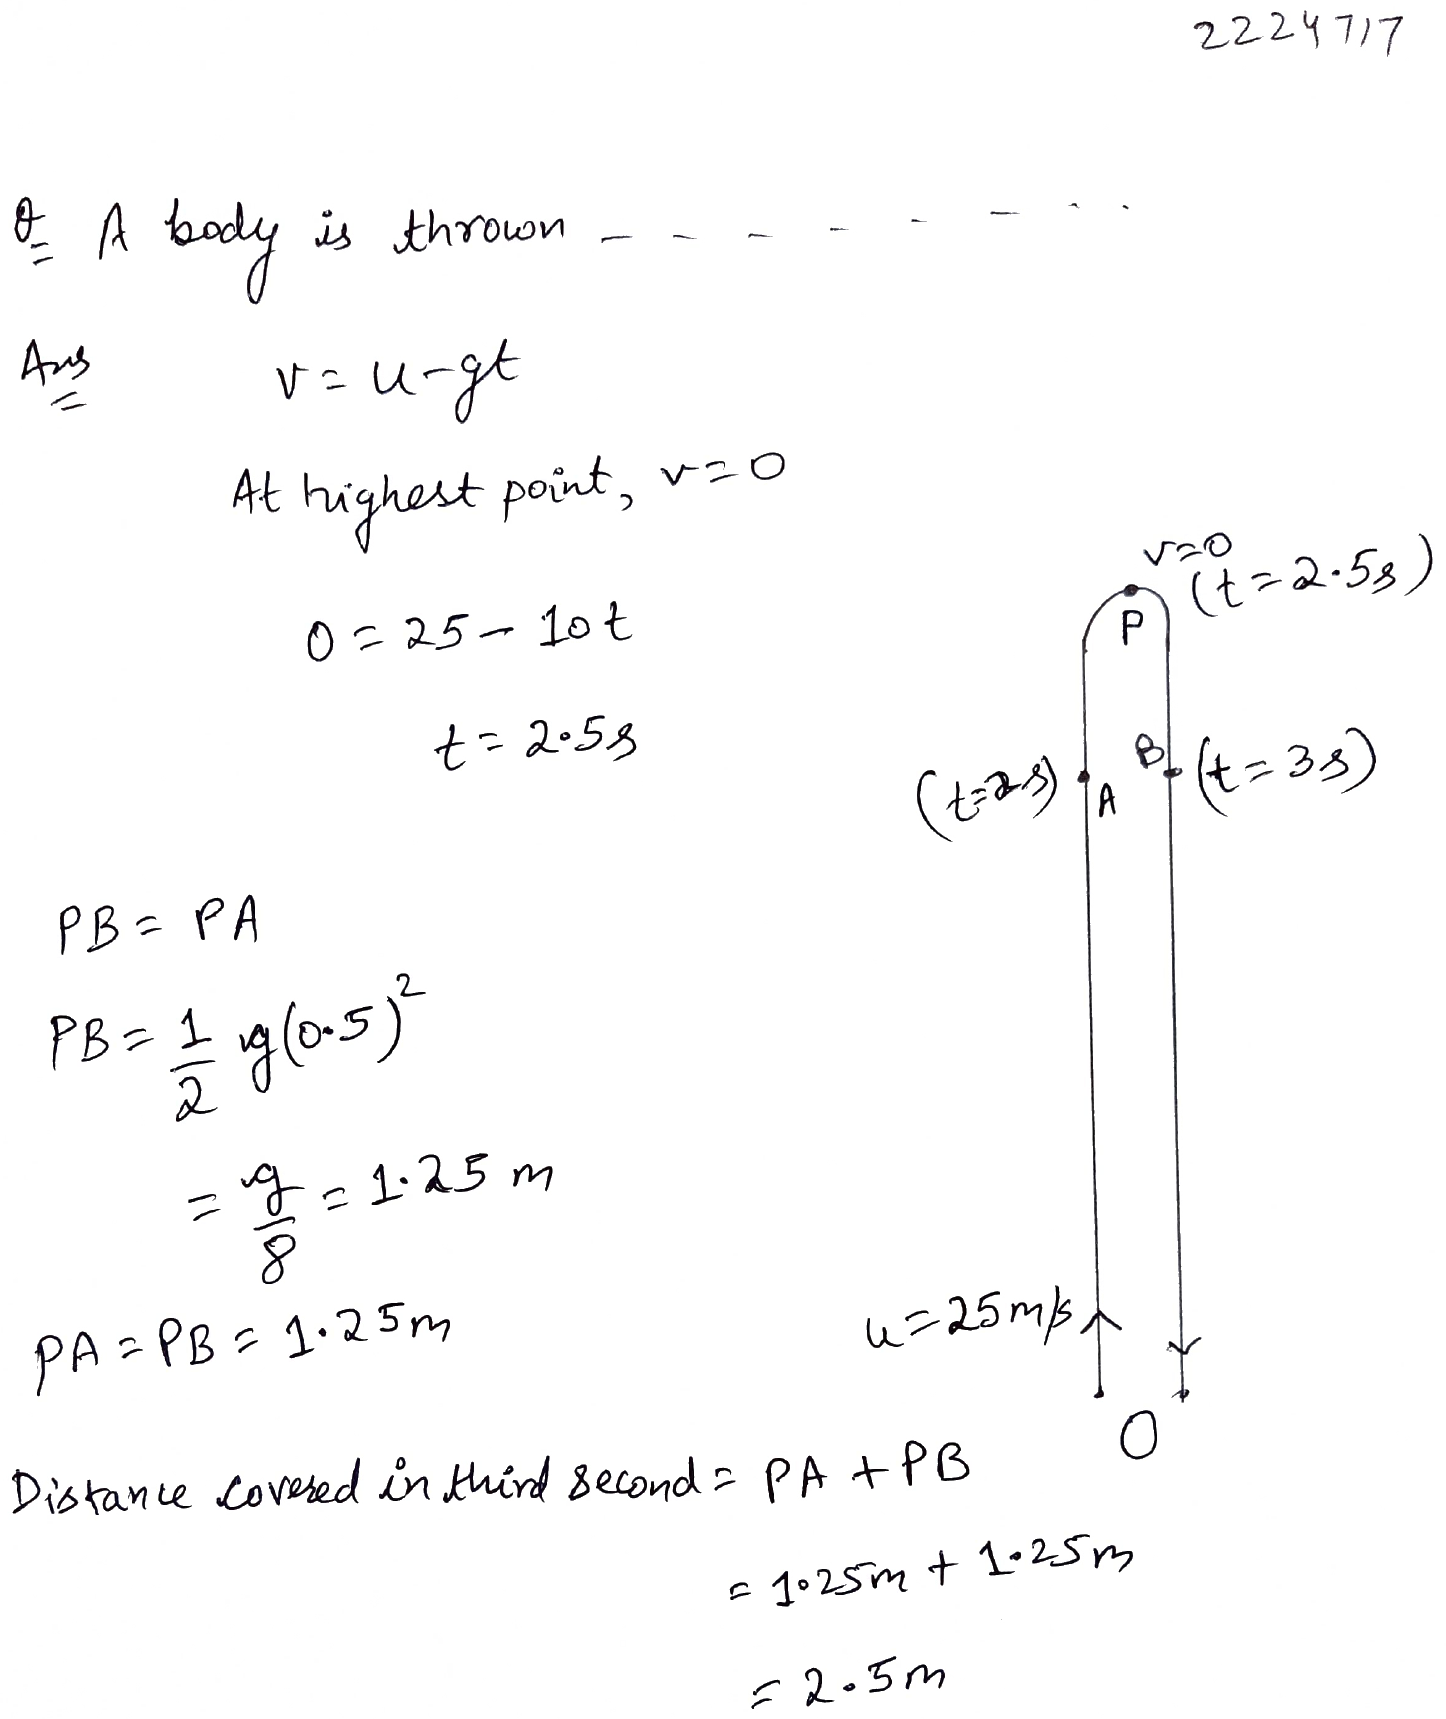 2224717
Q A body is thrown - - - - - - . .
Ans v = u-gt
At highest point, v=0
0 = 25 - 10t
t = 2.5s
v=0
(t = 2.5s)
P
(t=2s) A B (t = 3s)
PB = PA
PB = 1/2 g(0.5)²
= g/8 = 1.25 m
PA = PB = 1.25m
u=25m/s
O
Distance covered in third second = PA + PB
= 1.25m + 1.25m
= 2.5m